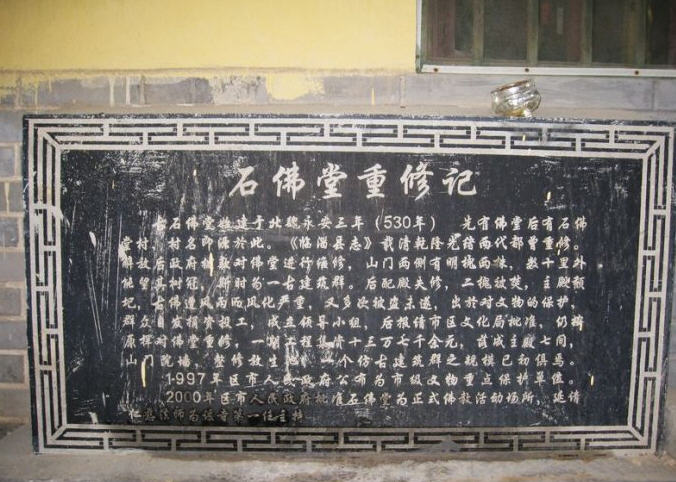 石佛堂重修记
古石佛堂始建于北魏永安三年（530年） 先有佛堂后有石佛
堂村，村名即源於此。《临淄县志》载清乾隆光绪两代都曾重修。
解放后政府拨款对佛堂进行维修，山门两侧有明槐两株，数十里外
能望其树冠，斯时为一古建筑群。后配殿失修，二槐被焚，主殿倾
圮，古佛遭风雨而风化严重，又多次被盗未遂。出於对文物的保护，
群众自发捐资投工，成立领导小组，后报请市区文化局批准，仍按
原样对佛堂重修，一期工程集资十三万七千余元，落成主殿七间，
山门院墙，整修放生池，一个仿古建筑群之规模已初俱焉。
1997年区市人民政府公布为市级文物重点保护单位。
2000年区市人民政府批准石佛堂为正式佛教活动场所，延请
法师为 第一任主持